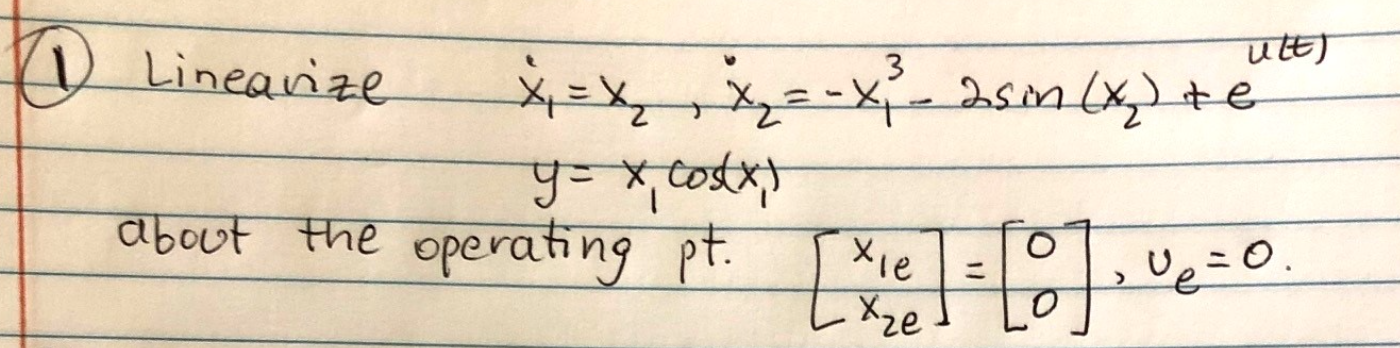 ① Linearize ẋ₁ = x₂ , ẋ₂ = -x₁³ - 2sin(x₂) + e^{u(t)}
y = x₁ cos(x₁)
about the operating pt. [x₁ₑ; x₂ₑ] = [0; 0] , uₑ = 0.